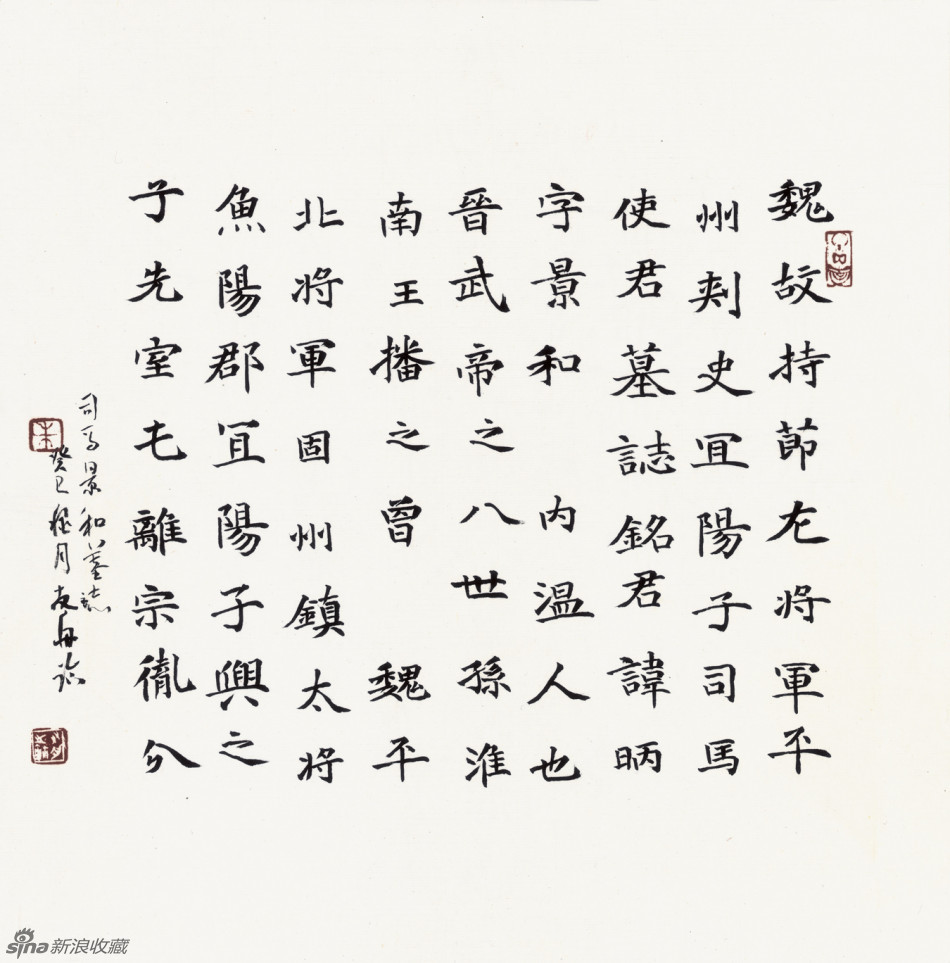 魏故持節左將軍平
州刺史宜陽子司馬
使君墓誌銘君諱昞
字景和内温人也
晉武帝之八世孫淮
南王播之曾魏平
北將軍固州鎮太將
魚陽郡宜陽子興之
子先室七離宗胤分
司馬景和墓誌
癸巳月友舟臨
sina新浪收藏